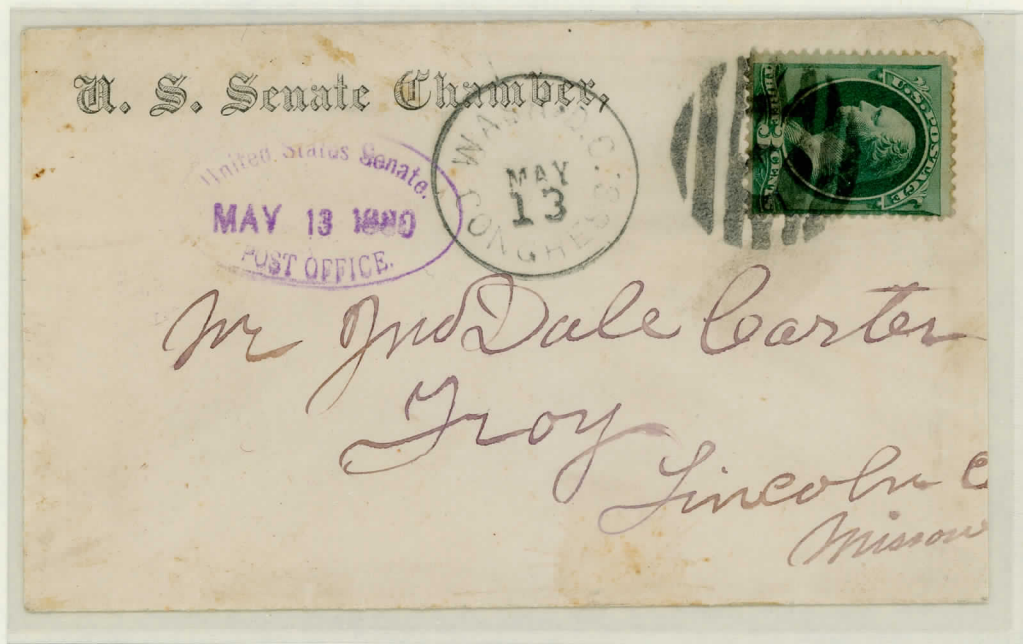 U. S. Senate Chamber,
United States Senate.
MAY 13 1880
POST OFFICE.
WASH. D.C.
MAY
13
CONGRESS
U.S. POSTAGE
Mr Jno Dale Carter
Troy
Lincoln C
Missou